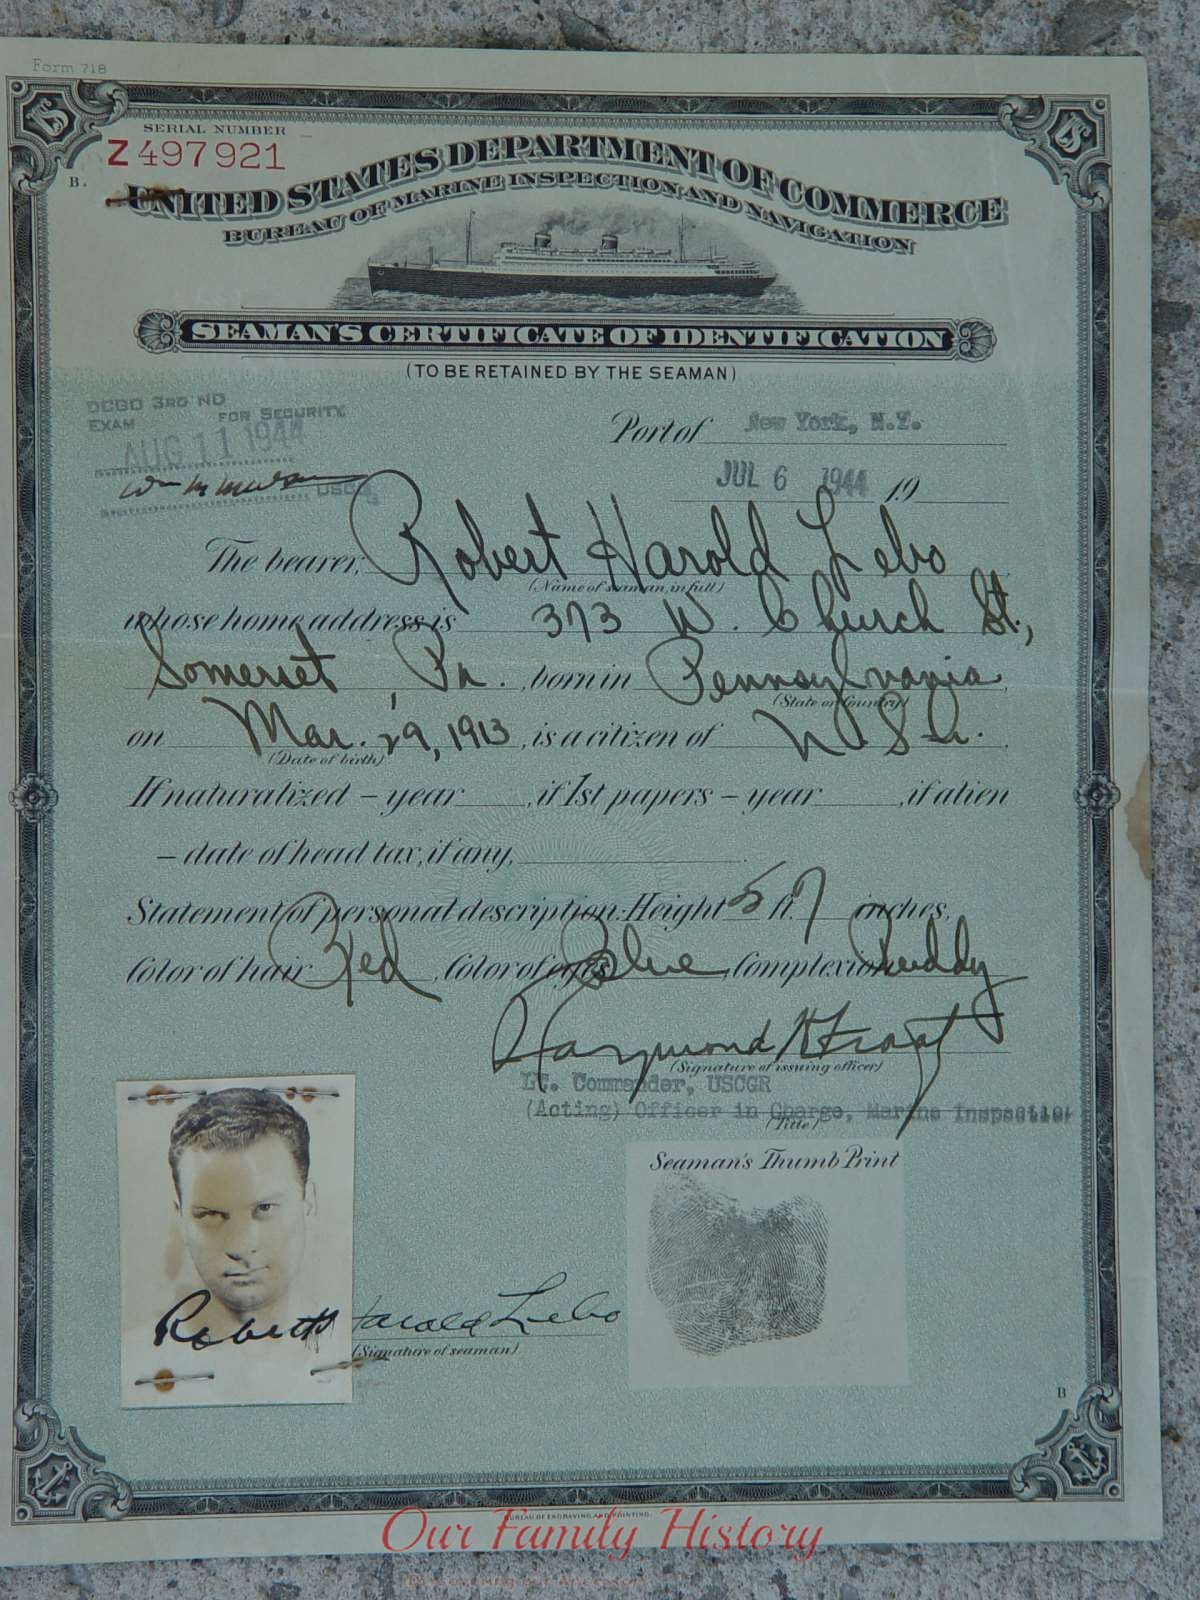 Form 718
SERIAL NUMBER
Z 497921
B.
UNITED STATES DEPARTMENT OF COMMERCE
BUREAU OF MARINE INSPECTION AND NAVIGATION
SEAMAN'S CERTIFICATE OF IDENTIFICATION
(TO BE RETAINED BY THE SEAMAN)
DCGO 3RD ND
EXAM FOR SECURITY
AUG 11 1944
USCG
Port of New York, N.Y.
JUL 6 1944 19
The bearer, Robert Harold Lebo
(Name of seaman, in full)
whose home address is 373 W. Church St.,
Somerset, Pa. born in Pennsylvania,
(State or Country)
on Mar. 29, 1913, is a citizen of U.S.A.
(Date of birth)
If naturalized – year , if 1st papers – year , if alien
– date of head tax, if any,
Statement of personal description: Height 5 ft. 7 inches,
Color of hair Red, Color of eyes Blue, Complexion Ruddy
Raymond
(Signature of issuing officer)
Lt. Commander, USCGR
(Acting) Officer in Charge, Marine Inspection
(Title)
Seaman's Thumb Print
Robert Harold Lebo
(Signature of seaman)
B
BUREAU OF ENGRAVING AND PRINTING.
Our Family History
Discovering our Ancestors